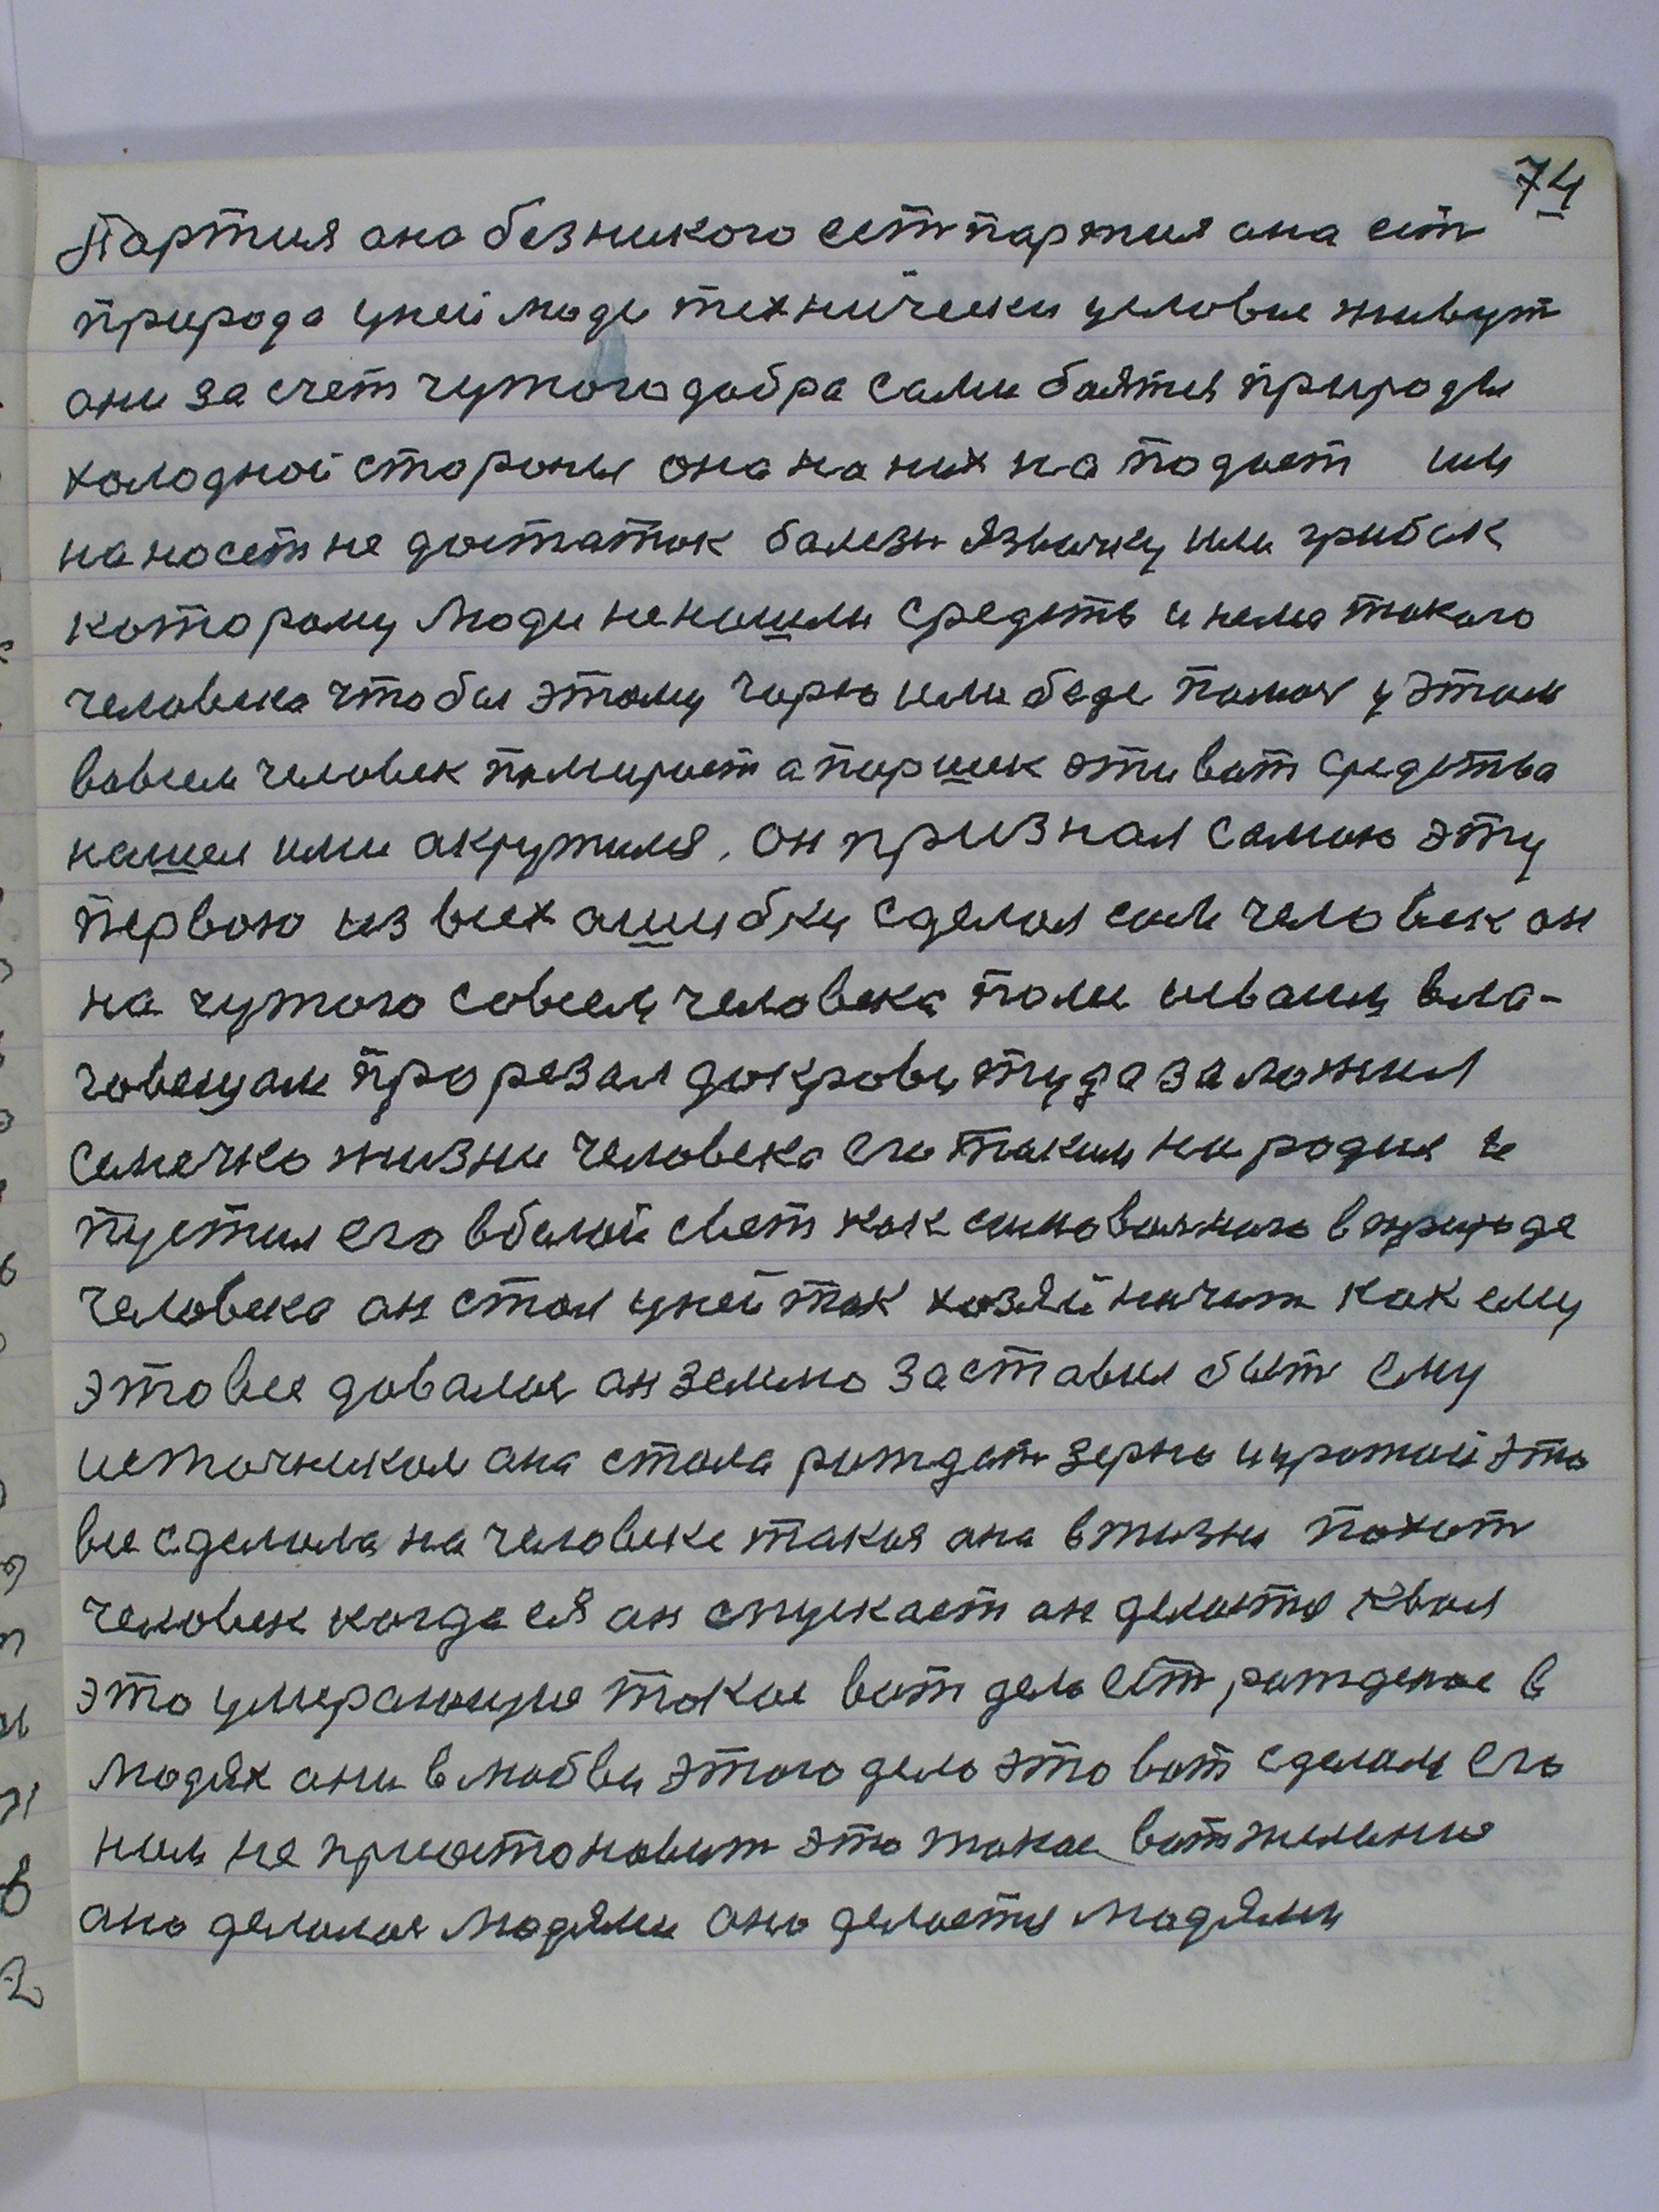 74
Партия ана безникого ест партия ана ест
природа уней люди технически условие живут
они за счет чужого добра сами баятся природы
холодной стороны она на них на подает им
на носет не достаток балезн язвачку или грибок
которому люди ненашли средств и нема такого
человека чтобы этому горю или беде памоч у этом
вовсем человек памирает а паршек эти вот средства
нашел ими акружился. он признал самою эту
первою из всех ашибку сделал сам человек он
на чужого совсем человека поли сваим вла-
говещам прорезал докрови туда заложил
семечко жизни человека его таким народил и
пустил его вбелый свет как самовольного в природе
человека ан стал уней так хозяйничат как ему
это все довалос ан землю заставил быт ему
источником ана стала рождат зерно и урожай это
все сделала на человеке такая ана вжизни похот
человек когда ея он спускает ан делается квол
это умерающие такое вот дело ест рожденое в
людях ани влюбви этого дело это вот сделали его
ним не приостоновит это такое вот желение
ано делалос людями ано делается людями